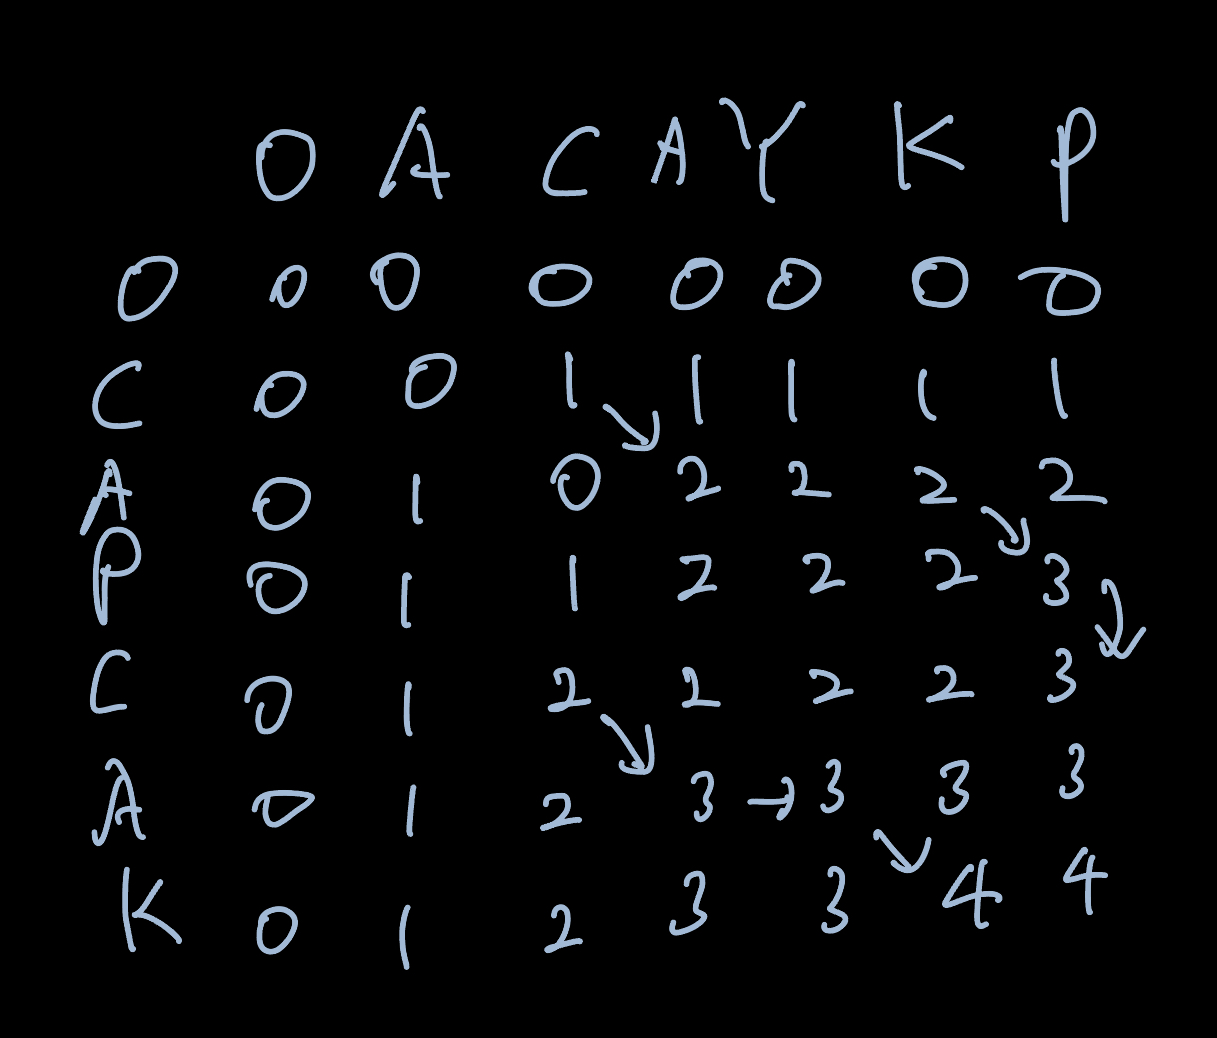 0 A C A Y K P
0 0 0 0 0 0 0 0
C 0 0 1 1 1 1 1
A 0 1 0 2 2 2 2
P 0 1 1 2 2 2 3
C 0 1 2 2 2 2 3
A 0 1 2 3 → 3 3 3
K 0 1 2 3 3 4 4